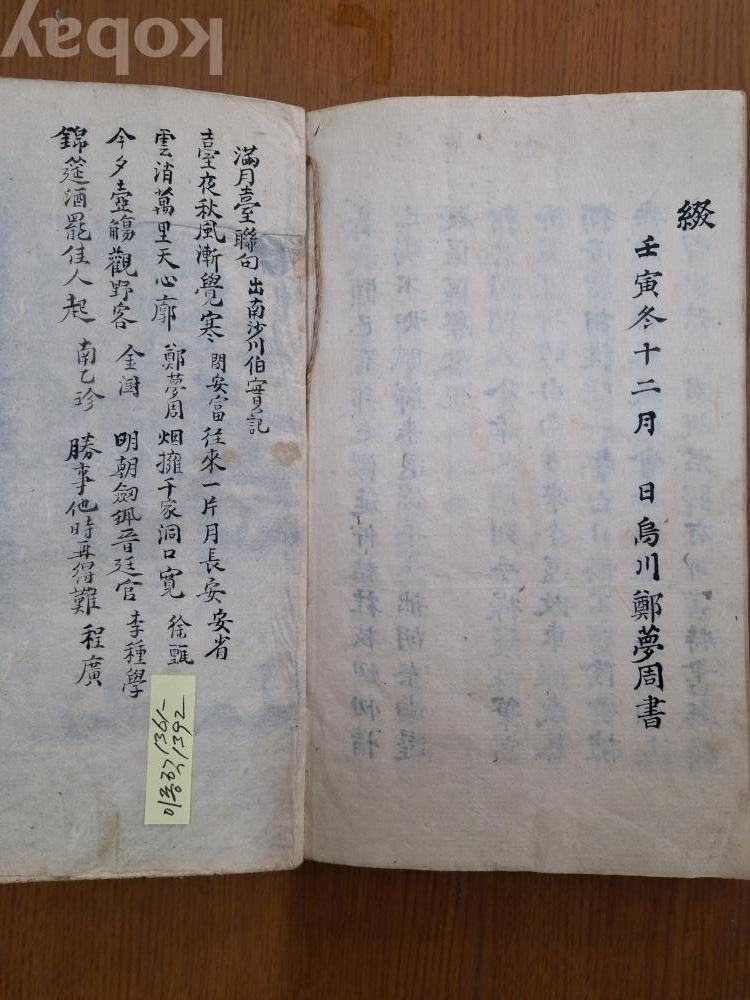 kobay
綴
壬寅冬十二月 日烏川鄭夢周書
滿月臺聯句 出南沙川伯實記
臺夜秋風漸覺寒 閔安富 往來一片月長安 安省
雲消萬里天心廓 鄭夢周 烟擁千家洞口寬 徐甄
今夕壺觴觀野客 金澍 明朝劒珮晉廷官 李種學
錦筵酒罷佳人起 南乙珍 勝事他時再得難 程廣
이종학, 1361-
1392